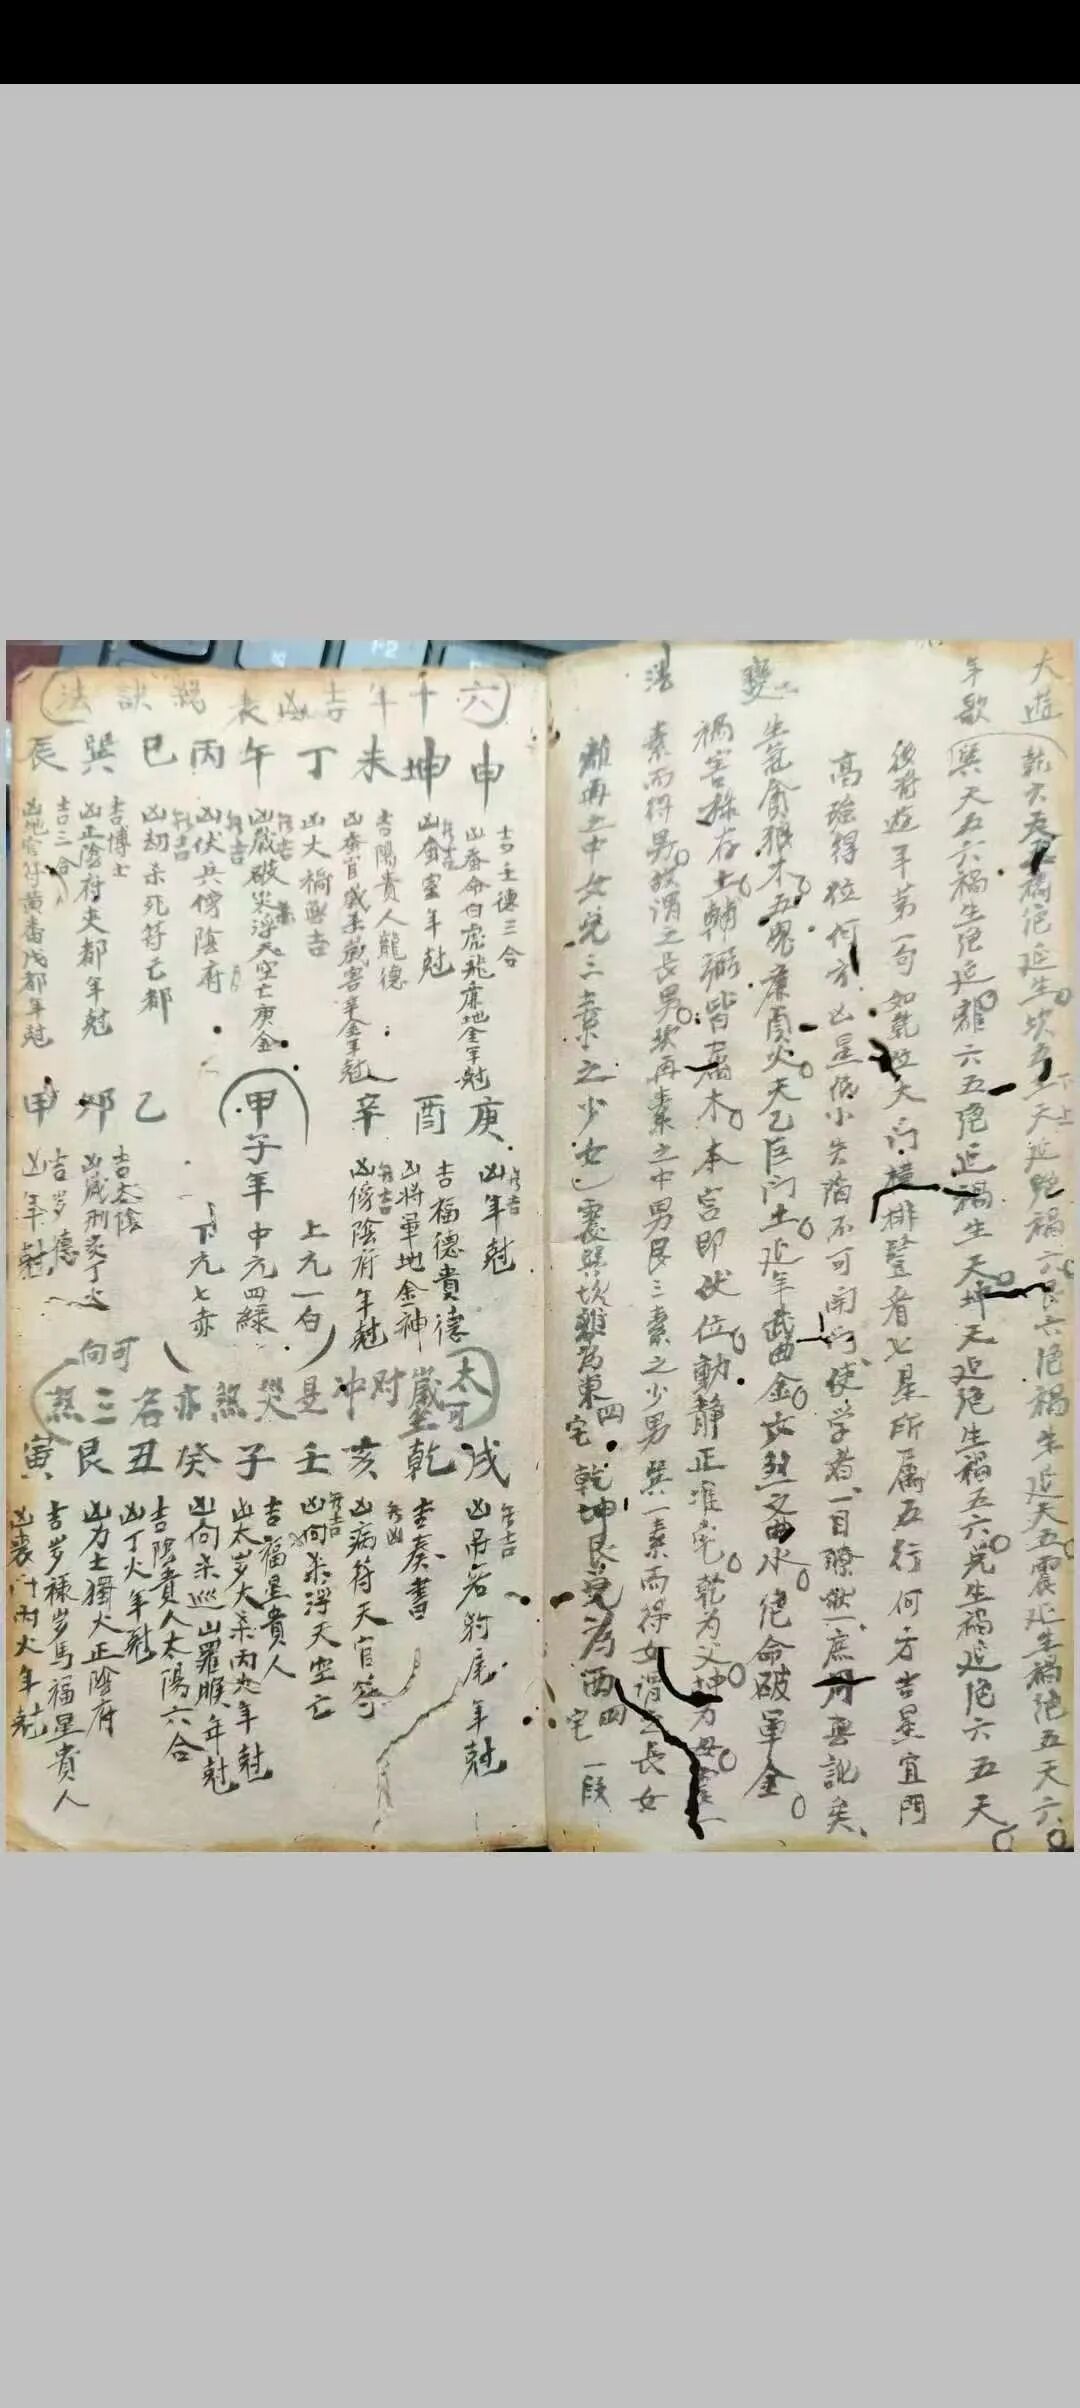 大遊
年歌
變
法
乾六天五禍絕延生坎五天生延絕禍六艮六絕禍生延天五震延生禍絕五天六
巽天五六禍生絕延離六五絕延禍生天坤天延絕生禍五六兌生禍延絕六五天
後看遊年第一句如乾位大門橫排豎看七星所屬五行何方吉星宜門
高強得位何方凶星低小失陷不可開門使学者一目瞭然庶用無訛矣
生気貪狼木五鬼廉貞火天乙巨门土延年武曲金六煞文曲水絕命破軍金
禍害祿存土輔弼皆屬木本宮即伏位動靜正準宅乾为父坤为母震一
素而得男故谓之長男坎再素之中男艮三素之少男巽一素而得女谓之長女
離再之中女兌三素之少女震巽坎離为東四宅乾坤艮兌为西四宅一段
六十年吉凶表總訣法
申
坤
未
丁
午
丙
巳
巽
辰
吉壬德三合
凶吞命白虎飛廉地金年尅
吉陽貴人龍德
凶歲破災浮天空亡庚金
凶伏兵傍陰府
凶劫杀死符亡都
吉博士
凶正陰府夹都年尅
吉三合
庚
酉
辛
乙
卯
甲
凶年尅
吉福德貴德
凶將軍地金神
凶傍陰府年尅
吉太陰
凶歲刑炙丁火
吉岁德
凶年尅
甲子年
上元一白
中元四綠
下元七赤
太歲对冲是災煞亦名三煞
可向
戌
乾
亥
壬
子
癸
丑
艮
寅
凶吊客豹尾年尅
吉奏書
凶病符天官符
凶向杀浮天空亡
吉福星貴人
凶太岁大杀丙火年尅
凶向杀巡山羅睺年尅
吉陰貴人太陽六合
凶丁火年尅
凶力士獨火正陰府
吉岁祿岁馬福星貴人
凶喪门丙火年尅